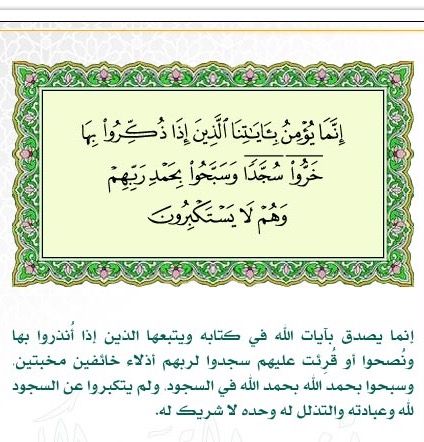 إِنَّمَا يُؤْمِنُ بِـَٔايَٰتِنَا ٱلَّذِينَ إِذَا ذُكِّرُوا۟ بِهَا
خَرُّوا۟ سُجَّدًا وَسَبَّحُوا۟ بِحَمْدِ رَبِّهِمْ
وَهُمْ لَا يَسْتَكْبِرُونَ
إنما يصدق بآيات الله في كتابه ويتبعها الذين إذا أُنذروا بها
ونُصحوا أو قُرِئت عليهم سجدوا لربهم أذلاء خائفين مخبتين.
وسبحوا بحمد الله بحمد الله في السجود. ولم يتكبروا عن السجود
لله وعبادته والتذلل له وحده لا شريك له.